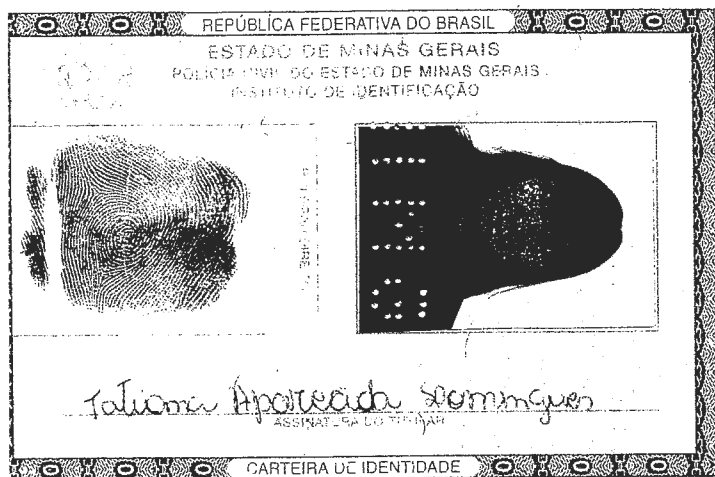 REPÚBLICA FEDERATIVA DO BRASIL
ESTADO DE MINAS GERAIS
POLÍCIA CIVIL DO ESTADO DE MINAS GERAIS
INSTITUTO DE IDENTIFICAÇÃO
Tatiana Aparecida Domingues
ASSINATURA DO TITULAR
CARTEIRA DE IDENTIDADE